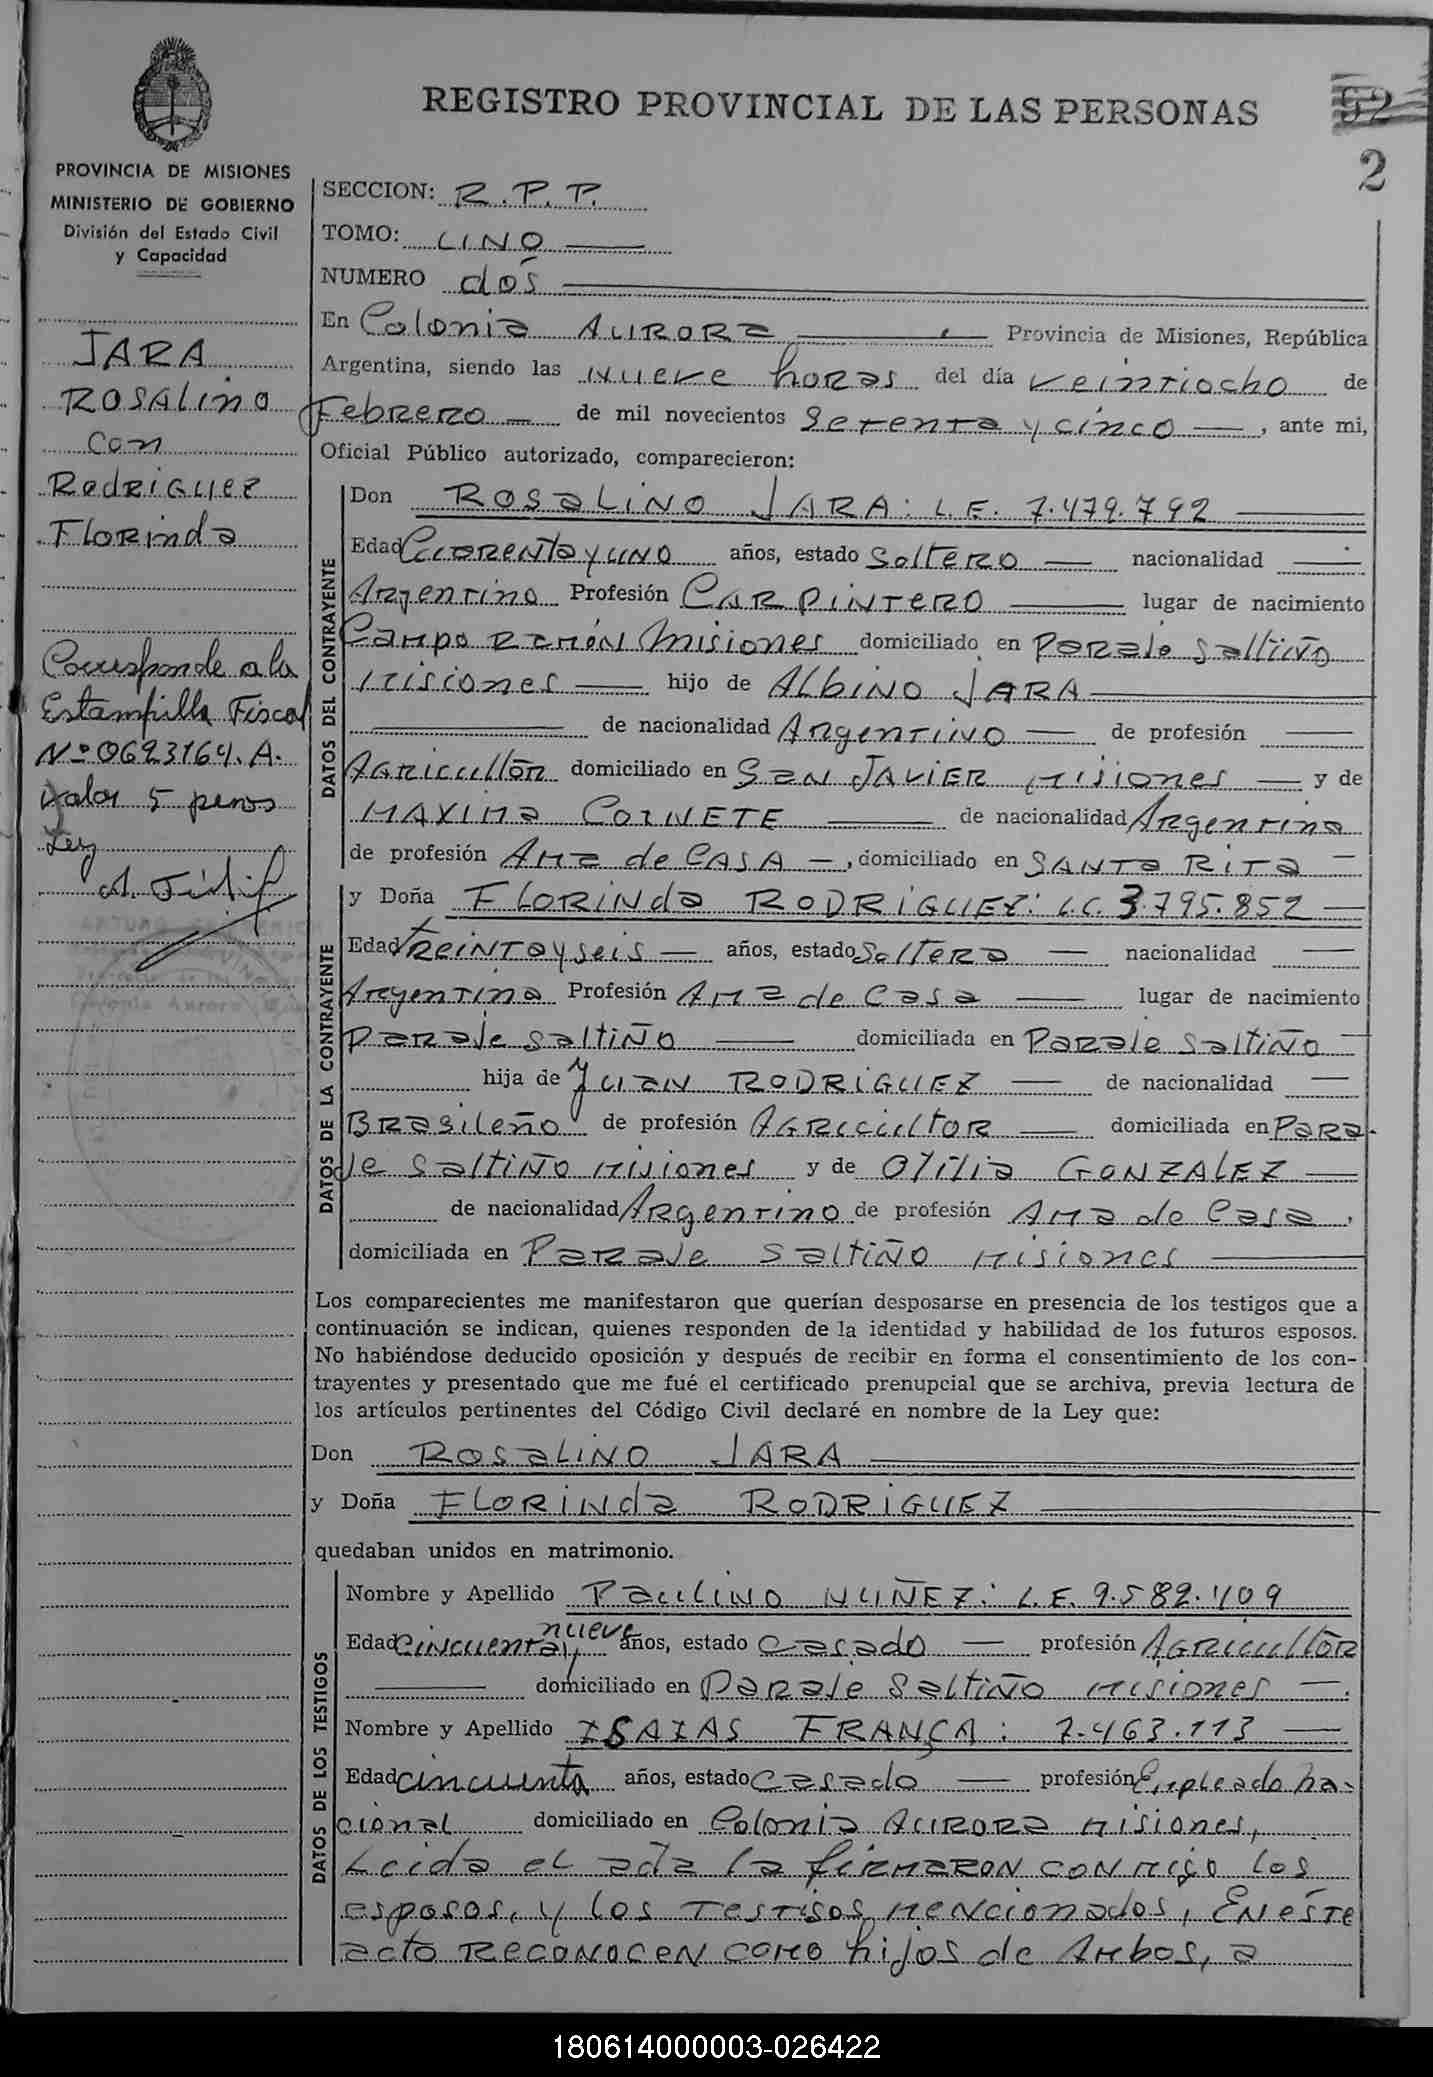 REGISTRO PROVINCIAL DE LAS PERSONAS
52
2
PROVINCIA DE MISIONES
MINISTERIO DE GOBIERNO
División del Estado Civil
y Capacidad
JARA
ROSALINO
CON
RODRIGUEZ
FLORINDA
Corresponde a la
Estampilla Fiscal
Nº 0623164. A.
Valor 5 pesos
Ley
SECCION: R.P.P.
TOMO: UNO
NUMERO dos
En Colonia AURORA Provincia de Misiones, República
Argentina, siendo las Nueve horas del día veintiocho de
Febrero de mil novecientos Setenta y cinco, ante mi,
Oficial Público autorizado, comparecieron:
DATOS DEL CONTRAYENTE
Don ROSALINO JARA: L.E. 7.479.792
Edad Cuarenta y uno años, estado Soltero nacionalidad
Argentino Profesión CARPINTERO lugar de nacimiento
Campo Ramón Misiones domiciliado en Paraje Saltiño
Misiones hijo de ALBINO JARA
de nacionalidad Argentino de profesión
Agricultor domiciliado en San Javier Misiones y de
MAXIMA CORNETE de nacionalidad Argentina
de profesión Ama de CASA, domiciliado en SANTA RITA
DATOS DE LA CONTRAYENTE
y Doña FLORINDA RODRIGUEZ: L.C. 3.795.852
Edad treinta y seis años, estado Soltera nacionalidad
Argentina Profesión Ama de Casa lugar de nacimiento
Paraje Saltiño domiciliada en Paraje Saltiño
hija de Juan RODRIGUEZ de nacionalidad
Brasileño de profesión Agricultor domiciliada en Para-
je Saltiño Misiones y de Otilia GONZALEZ
de nacionalidad Argentino de profesión Ama de Casa,
domiciliada en Paraje Saltiño Misiones
Los comparecientes me manifestaron que querían desposarse en presencia de los testigos que a
continuación se indican, quienes responden de la identidad y habilidad de los futuros esposos.
No habiéndose deducido oposición y después de recibir en forma el consentimiento de los con-
trayentes y presentado que me fué el certificado prenupcial que se archiva, previa lectura de
los artículos pertinentes del Código Civil declaré en nombre de la Ley que:
Don ROSALINO JARA
y Doña FLORINDA RODRIGUEZ
quedaban unidos en matrimonio.
DATOS DE LOS TESTIGOS
Nombre y Apellido Paulino NUÑEZ: L.E. 9.582.409
Edad cincuenta y nueve años, estado casado profesión Agricultor
domiciliado en Paraje Saltiño Misiones.
Nombre y Apellido ISAIAS FRANÇA: 7.463.113
Edad cincuenta años, estado Casado profesión Empleado na-
cional domiciliado en Colonia Aurora Misiones,
Leida el acta la firmaron conmigo los
esposos, y los testigos mencionados, En éste
acto RECONOCEN como hijos de Ambos, a
180614000003-026422